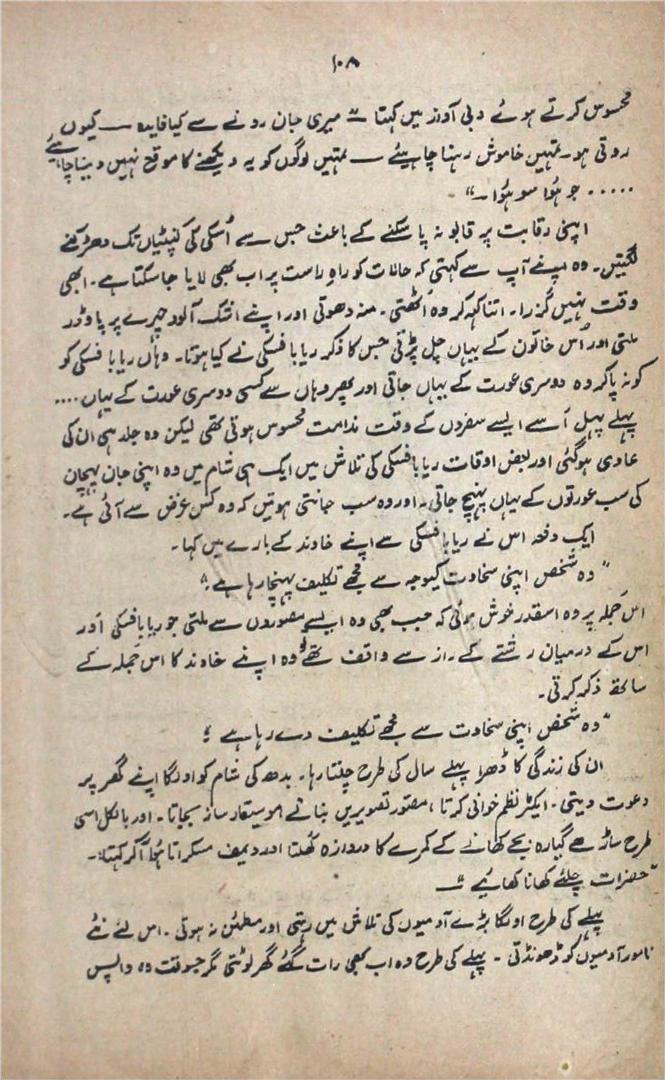 ۱۰۸
محسوس کرتے ہوئے دبی آواز میں کہتا " میری جان رونے سے کیا فایدہ — کیوں
روتی ہو۔ تمہیں خاموش رہنا چاہیئے — تمہیں لوگوں کو یہ دیکھنے کا موقع نہیں دینا چاہیے
..... جو ہُوا سو ہُوا۔"
اپنی رقابت پر قابو نہ پا سکنے کے باعث جس سے اُسکی کنپٹیاں تک دھڑکنے
لگتیں۔ وہ اپنے آپ سے کہتی کہ حالات کو راہِ راست پر اب بھی لایا جا سکتا ہے۔ ابھی
وقت نہیں گزرا۔ اتنا کہہ کر وہ اُٹھتی۔ منہ دھوتی اور اپنے اشک آلود چہرے پر پاؤڈر
ملتی اور اُس خاتون کے یہاں چل پڑتی جس کا ذکر ریابافسکی نے کیا ہوتا۔ وہاں ریابافسکی کو
کو نہ پا کر وہ دوسری عورت کے یہاں جاتی اور پھر وہاں سے کسی دوسری عورت کے یہاں ....
پہلے پہل اُسے ایسے سفروں کے وقت ندامت محسوس ہوتی تھی لیکن وہ جلد ہی ان کی
عادی ہو گئی اور بعض اوقات ریابافسکی کی تلاش میں ایک ہی شام میں وہ اپنی جان پہچان
کی سب عورتوں کے یہاں پہنچ جاتی۔ اور وہ سب جانتی ہوتیں کہ وہ کس غرض سے آئی ہے۔
ایک دفعہ اس نے ریابافسکی سے اپنے خاوند کے بارے میں کہا۔
" وہ شخص اپنی سخاوت کیوجہ سے مجھے تکلیف پہنچا رہا ہے "
اس جملہ پر وہ اسقدر خوش ہوئی کہ جب بھی وہ ایسے مصوروں سے ملتی جو ریابافسکی اور
اس کے درمیان رشتے کے راز سے واقف تھے وہ اپنے خاوند کا اس جملہ کے
ساتھ ذکر کرتی۔
" وہ شخص اپنی سخاوت سے مجھے تکلیف دے رہا ہے "
ان کی زندگی کا ڈھرا پہلے سال کی طرح چلتا رہا۔ بدھ کی شام کو اولگا اپنے گھر پر
دعوت دیتی۔ ایکٹر نظم خوانی کرتا، مصور تصویریں بناتے موسیقار ساز بجاتا۔ اور بالکل اسی
طرح ساڑھے گیارہ بجے کھانے کے کمرے کا دروازہ کھلتا اور دیمف مسکراتا ہوا آکر کہتا:۔
"حضرات چلئے کھانا کھائیے "—
پہلے کی طرح اولگا بڑے آدمیوں کی تلاش میں رہتی اور مطمئن نہ ہوتی۔ اس لئے نئے
نامور آدمیوں کو ڈھونڈتی ۔ پہلے کی طرح وہ اب بھی رات گئے گھر لوٹتی مگر جسوقت وہ واپس